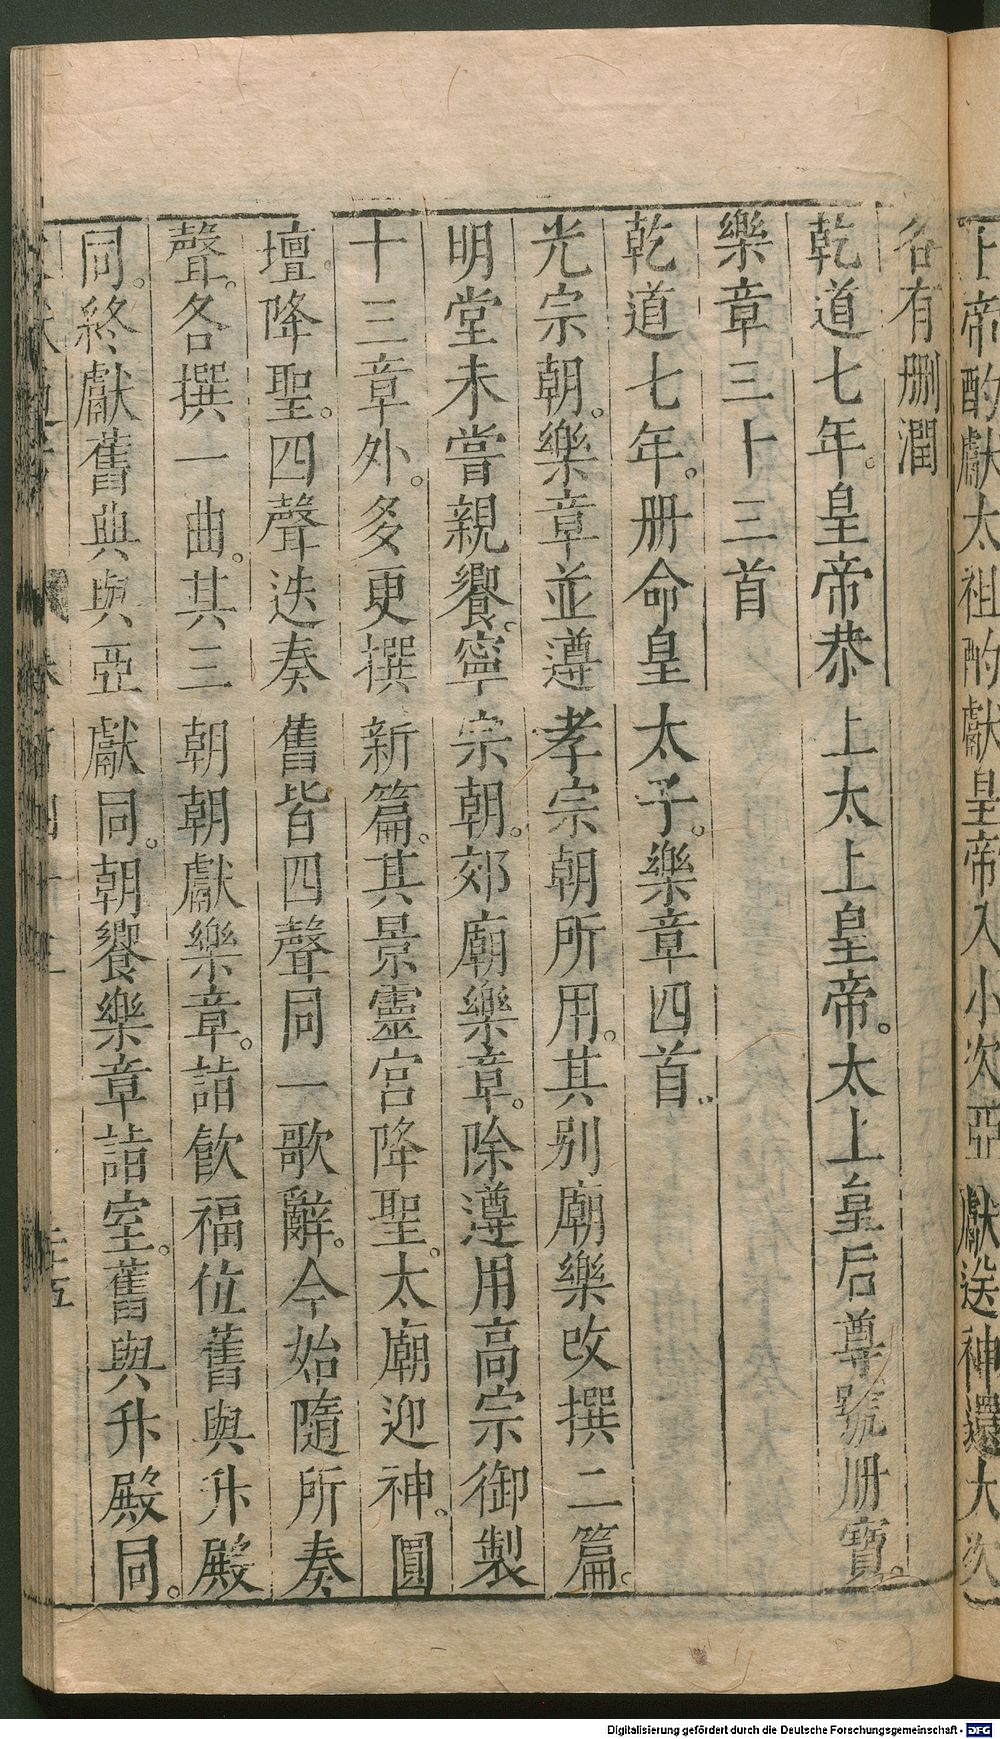 上帝酌獻太祖酌獻皇帝入小次亞獻送神還大次
各有刪潤
乾道七年。皇帝恭上太上皇帝。太上皇后尊號册寶。
樂章三十三首
乾道七年。册命皇太子。樂章四首。
光宗朝。樂章並遵孝宗朝所用。其别廟樂改撰二篇。
明堂未嘗親饗。寧宗朝。郊廟樂章。除遵用高宗御製
十三章外。多更撰新篇。其景靈宫降聖。太廟迎神。圓
壇。降聖。四聲迭奏舊皆四聲同一歌辭。今始隨所奏
聲。各撰一曲。其三朝朝獻樂章。詣飲福位舊與升殿
同。終獻舊與與亞獻同。朝饗樂章詣室。舊與升殿同。
Digitalisierung gefördert durch die Deutsche Forschungsgemeinschaft - DFG